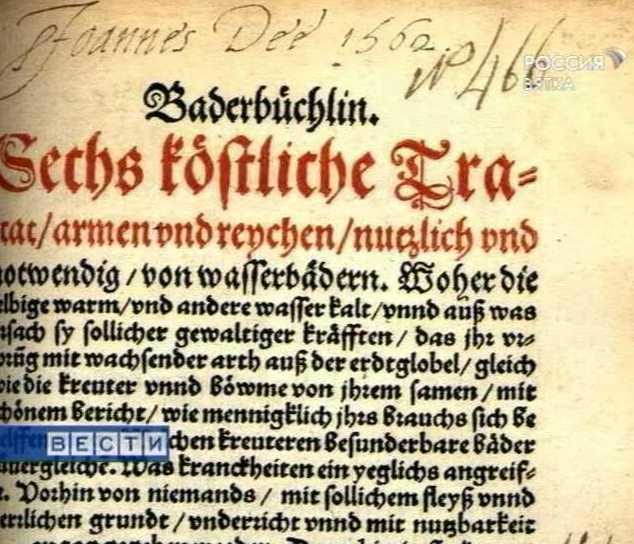 Joannes Dee 1562.
РОССИЯ
ВЯТКА
Baderbüchlin.
Sechs köstliche Tra-
tat/armen vnd reychen/nutzlich vnd
notwendig/von wasserbädern. Woher die
elbige warm/vnd andere wasser kalt/vnnd auß was
rsach sy sollicher gewaltiger kräfften/das jhr vr-
prüg mit wachsender arth auß der erdtglobel/gleich
wie die kreuter vnnd böwme von jhrem samen/mit
chönem bericht/wie mennigklich jhrs brauchs sich be
elffen chen kreuteren besunderbare bäder
ВЕСТИ
uuergleiche. Was kranckheiten ein yeglichs angreif-
t. Vorhin von niemands/mit sollichem fleyß vnnd
grundt/vnderricht vnnd mit nutzbarkeit